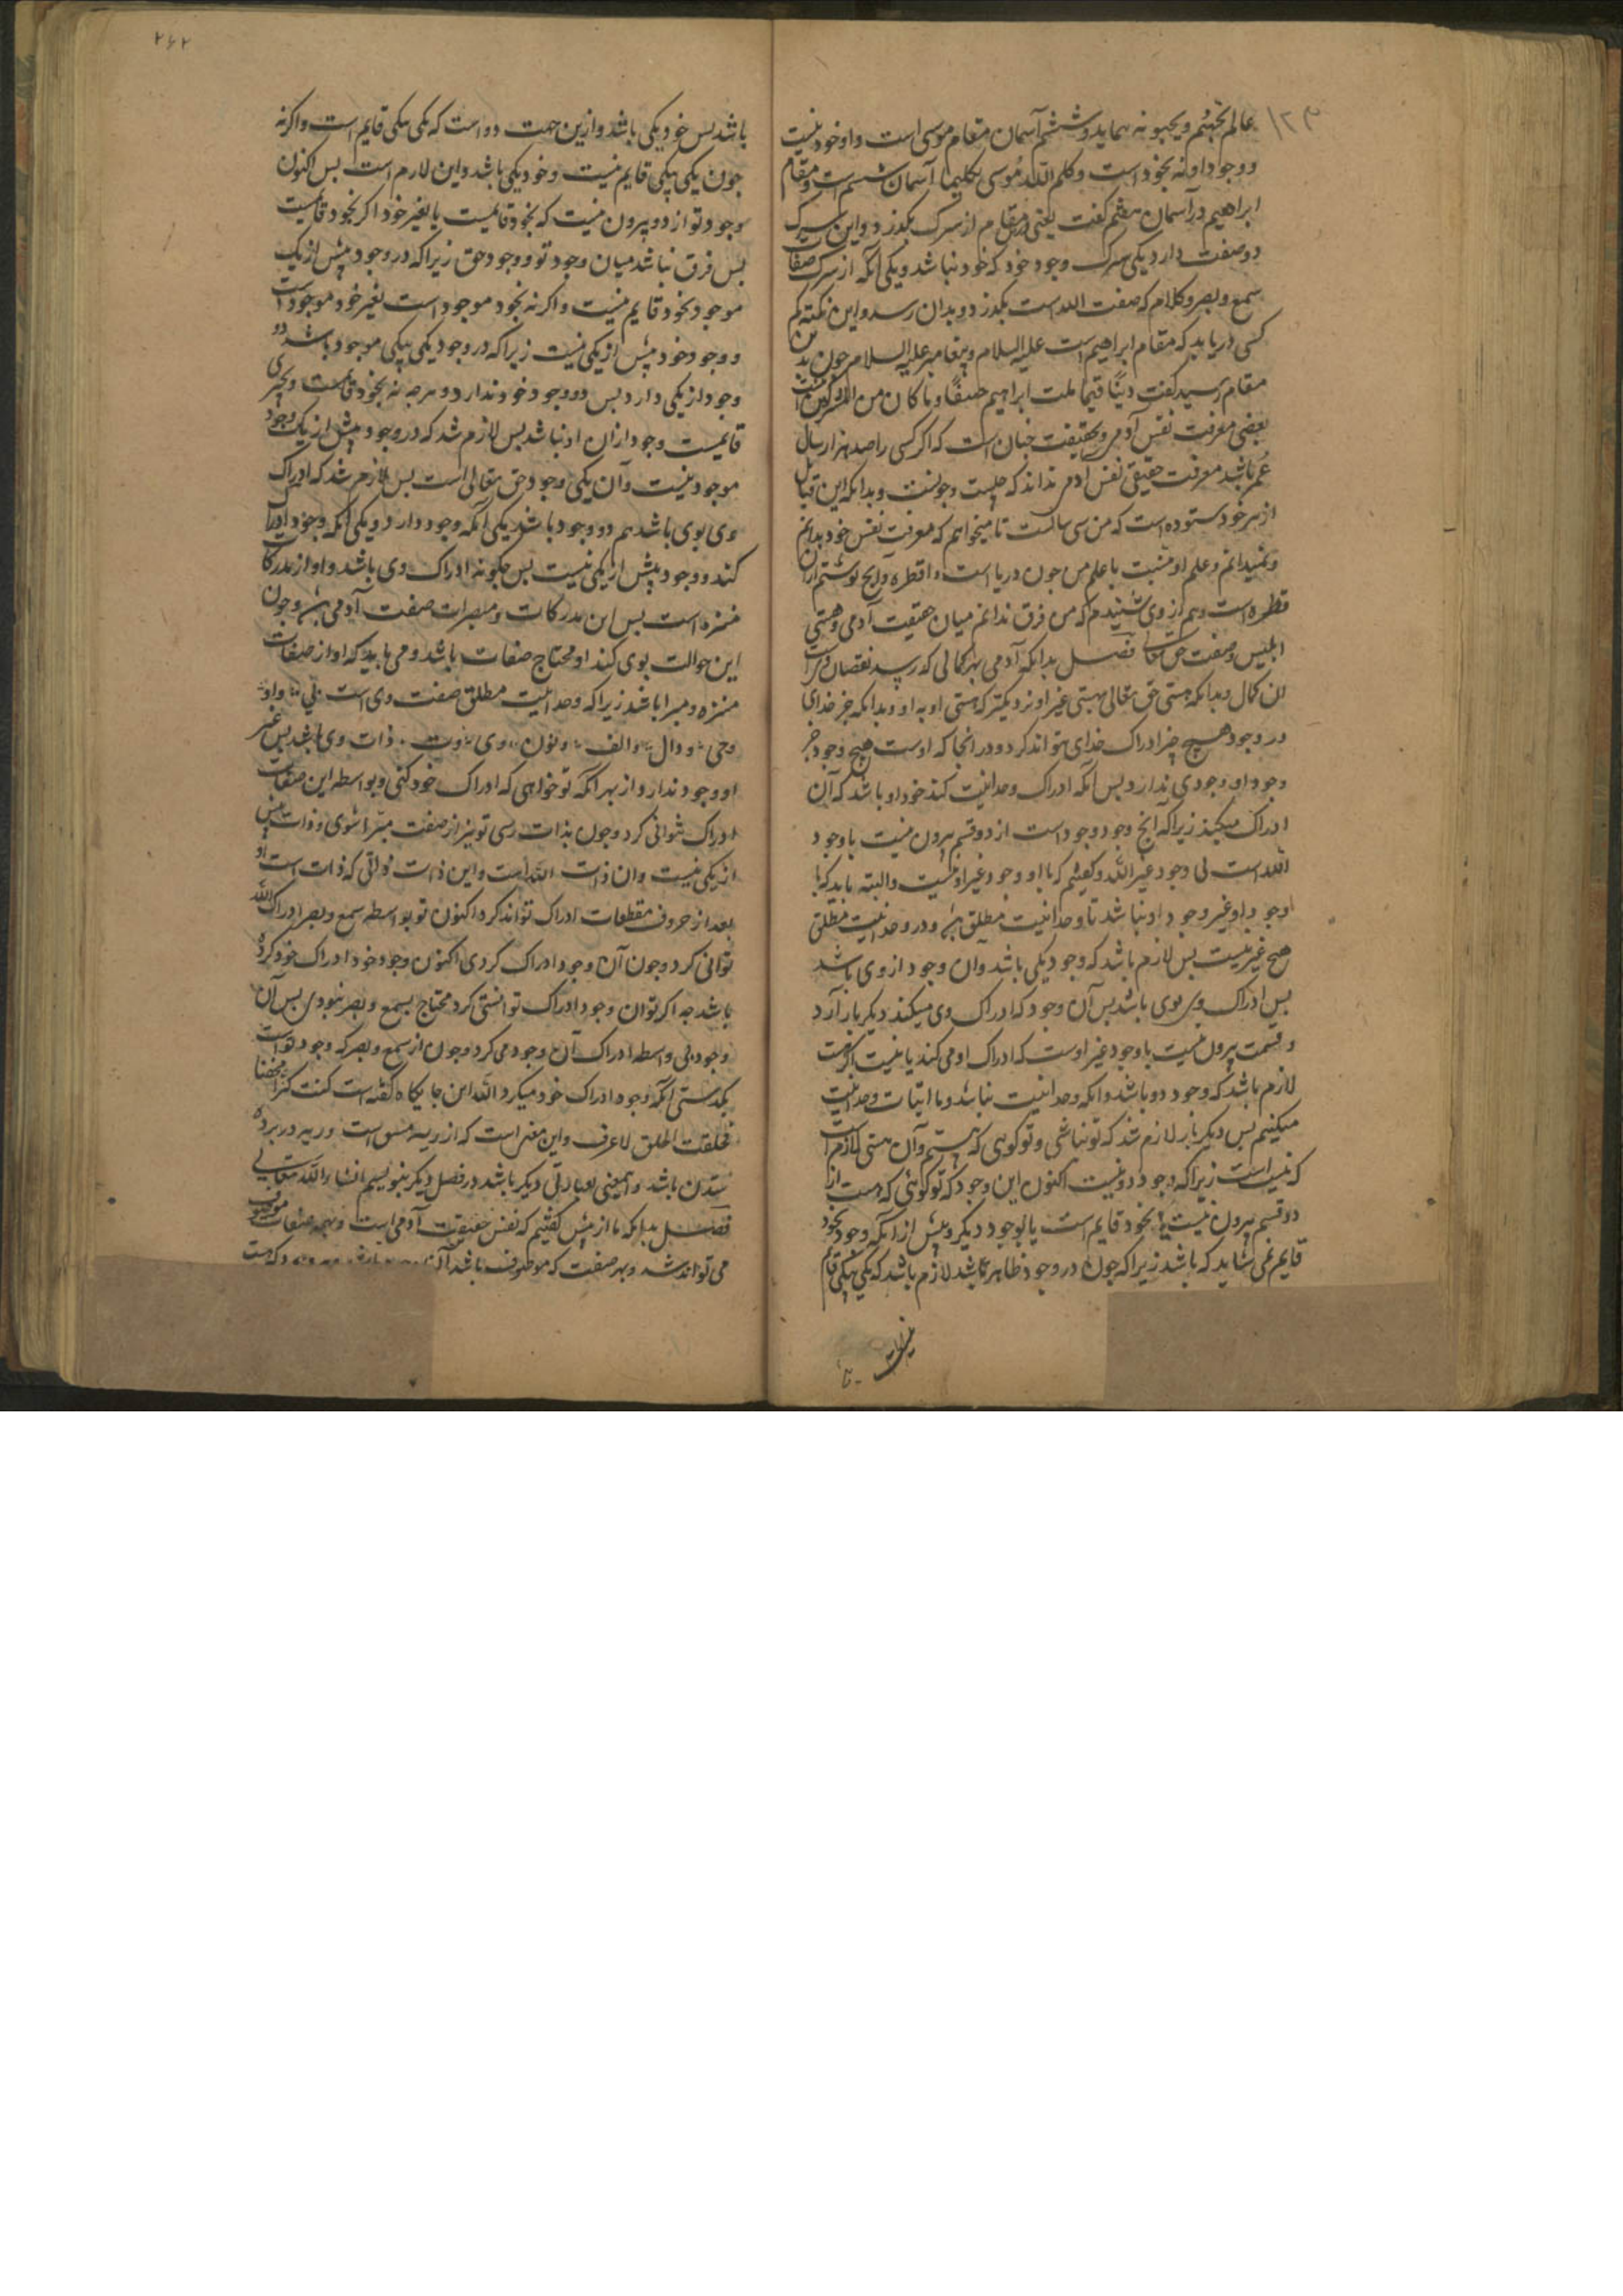 ۱۲۳
عالم یحبهم ویحبونه بماید وششم آسمان مقام موسی است واو خود نیست
ووجود او نه بخود است وکلم الله موسی تکلیما آسمان ششم است ومقام
ابراهیم در آسمان هفتم گفت یعنی مقام از شرک بگذرد واین شرک
دو صفت دارد یکی شرک وجود خود که خود نباشد ویکی آنکه از شرک صفات
سمع وبصر وکلام که صفت الله است بگذرد وبدان رسد واین نکته کم
کسی دریابد که مقام ابراهیم است علیه السلام وپیغامبر علیه السلام چون بدین
مقام رسید گفت دینا قیما ملت ابراهیم حنیفا وما کان من المشرکین
بعضی معرفت نفس آدمی وبحقیقت چنان است که اگر کسی را صد هزار سال
عمر باشد معرفت حقیقی نفس آدمی نداند که چیست وچونست وبدانکه این
از هر خود ستوده است که من سی سالست تا میخواهم که معرفت نفس خود بدانم
ونمیدانم وعلم او نسبت با علم من چون دریا است وقطره وآنچ نوشتم ازان
قطره است وهم از وی شنیدم که من فرق ندانم میان حقیقت آدمی وهستی
ابلیس وصفت حق تعالی فصل بدانکه آدمی بهر کمالی که رسد نقصان
آن کمال وبدانکه هستی حق تعالی بهستی غیر او نزدیکتر که هستی او به او وبدانکه جز خدای
در وجود هیچ چیز ادراک خدای نتواند کرد ودر آنجا که اوست هیچ وجود جز
وجود او وجودی ندارد پس آنکه ادراک وحدانیت کند خود او باشد که آن
ادراک میکند زیرا که آنچ وجود وجود است از دو قسم بیرون نیست یا وجود
الله است یا وجود غیر الله وگفتیم که با او وجود غیر او نیست والبته باید که با
وجود او غیر وجود او نباشد تا وحدانیت مطلق باشد ودر وحدانیت مطلق
هیچ غیر نیست پس لازم باشد که وجود یکی باشد وآن وجود از وی باشد
پس ادراک وی بوی باشد پس آن وجود که ادراک وی میکند دیگر بار از دو
قسمت بیرون نیست یا وجود غیر اوست که ادراک او می کند یا نیست اگر هست
لازم باشد که وجود دو باشد وآنکه وحدانیت نباشد وما اثبات وحدانیت
میکنیم پس دیگر بار لازم شد که تو نباشی وتو گویی که هستم وآن هستی لازم است
که نیست است زیرا که وجود دو نیست اکنون این وجود که تو گوئی که هست از
دو قسم بیرون نیست یا بخود قایم است یا بوجود دیگر وپیش از آنکه وجود بخود
قایم نمی شاید که باشد زیرا که چون در وجود ظاهر باشد لازم باشد که یکی بیکی قایم
۲۶۲
باشد پس خود یکی باشد وازین جهت دو است که یکی بیکی قایم است واگر نه
چون یکی بیکی قایم نیست وخود یکی باشد واین لازم است پس اکنون
وجود تو از دو بیرون نیست که بخود قایمست یا بغیر خود اگر بخود قایمست
پس فرق نباشد میان وجود تو ووجود حق زیرا که در وجود بیش از یک
موجود بخود قایم نیست واگر نه بخود موجود است بغیر خود موجود است
ووجود خود بیش از یکی نیست زیرا که در وجود یکی بیکی موجود باشد دو
وجود از یکی دارد پس دو وجود خود ندارد وهرچه نه بخود قایمست وبچیزی
قایمست وجود ازان او نباشد پس لازم شد که در وجود بیش از یک وجود
موجود نیست وآن یکی وجود حق تعالی است پس لازم شد که ادراک
وی بوی باشد هم دو وجود باشد یکی آنکه وجود دارد ویکی آنکه وجود ادراک
کند ووجود بیش از یکی نیست پس چگونه ادراک وی باشد واو از مدرکات
منزه است پس این مدرکات ومبصرات صفت آدمی باشد وچون
این حوالت بوی کند او محتاج صفات باشد ومی باید که او از صفات
منزه ومبرا باشد زیرا که وحدانیت مطلق صفت وی است بی واو
وحی ودال والف ونون وی وت ذات وی باشد پس غیر
او وجود ندارد از بهر آنکه تو خواهی که ادراک خود کنی وبواسطه این صفات
ادراک نتوانی کرد وچون بذات رسی تو نیز از صفت مبرا شوی وذات بیش
از یکی نیست وآن ذات الله است واین ذات ذاتی که ذات است او
بعد از حروف مقطعات ادراک تواند کرد اکنون تو بواسطه سمع وبصر ادراک الله
توانی کرد وچون آن وجود ادراک کردی اکنون وجود خود ادراک خود کرده
باشد چه اگر تو آن وجود ادراک توانستی کرد محتاج بسمع وبصر نبودی پس آن
وجود بی واسطه ادراک آن وجود می کرد وچون از سمع وبصر که وجود تو است
بگذشتی آنکه وجود ادراک خود میکرد الله این جایگاه گفته است کنت کنزا مخفیا
فخلقت الخلق لاعرف واین
باشد واینمعنی بعبارتی دیگر باشد در فصل دیگر بنویسیم انشاء الله تعالی
فصل بدانکه ما از پیش گفتیم که نفس حقیقت آدمی است وبهمه صفات موصوف
می تواند شد وبهر صفت که موصوف باشد آن